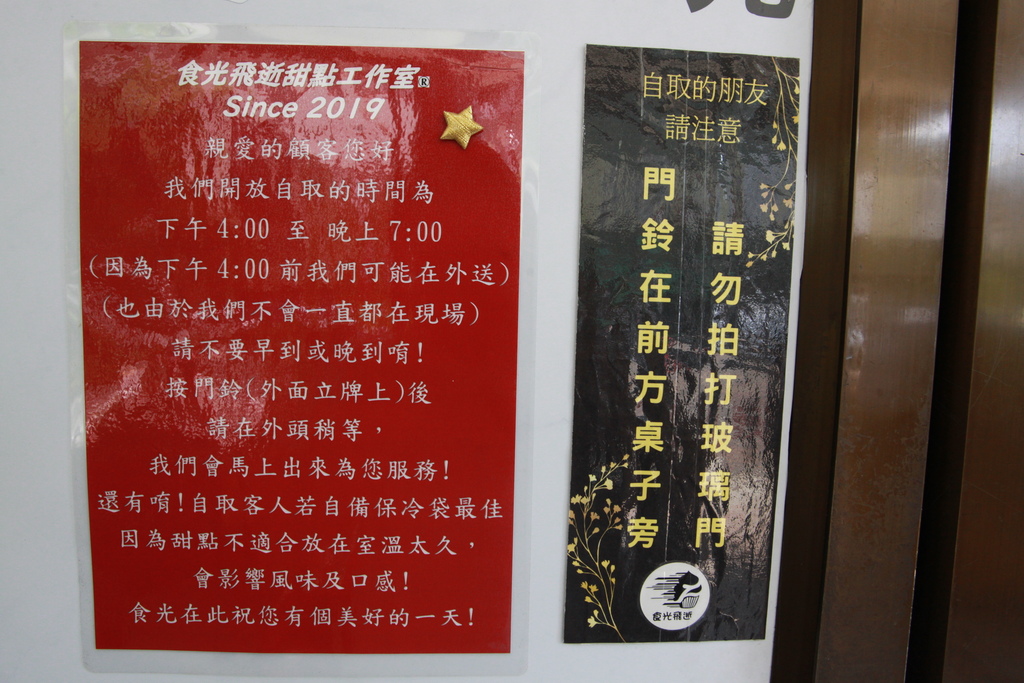 食光飛逝甜點工作室®
Since 2019
親愛的顧客您好
我們開放自取的時間為
下午 4:00 至 晚上 7:00
(因為下午 4:00 前我們可能在外送)
(也由於我們不會一直都在現場)
請不要早到或晚到唷!
按門鈴(外面立牌上)後
請在外頭稍等，
我們會馬上出來為您服務!
還有唷!自取客人若自備保冷袋最佳
因為甜點不適合放在室溫太久，
會影響風味及口感!
食光在此祝您有個美好的一天!
自取的朋友
請注意
請勿拍打玻璃門
門鈴在前方桌子旁
食光飛逝